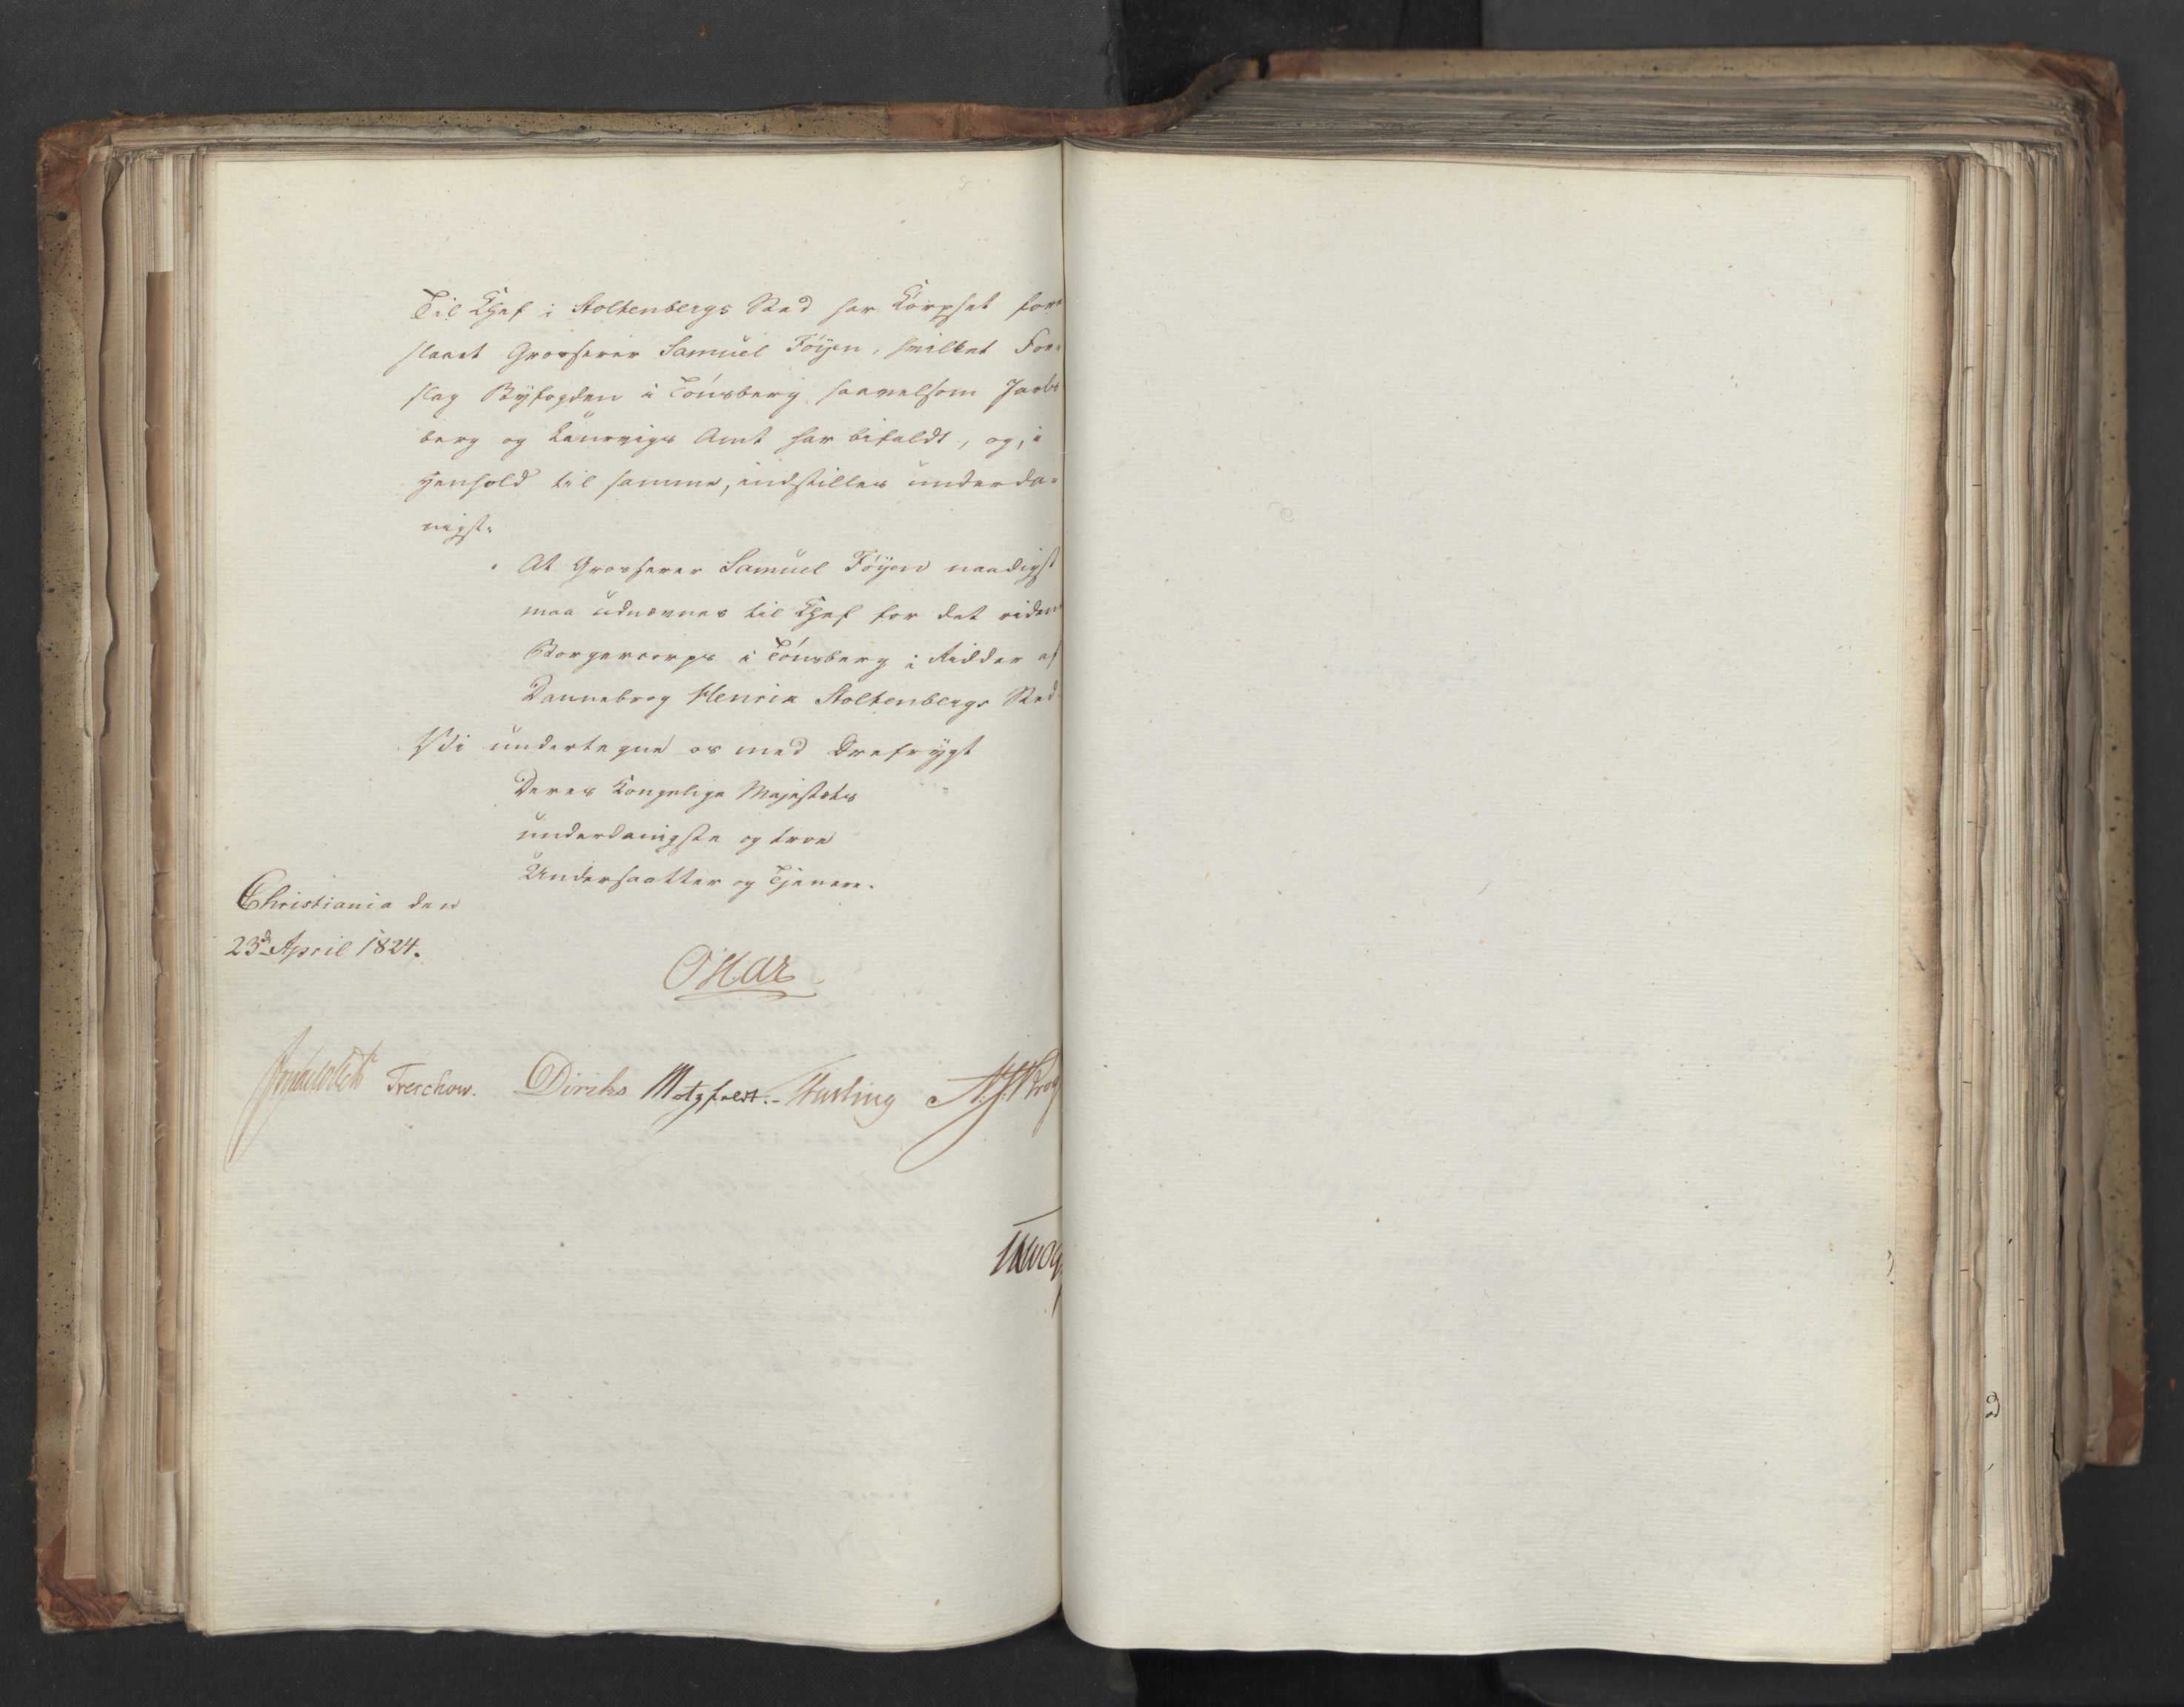 Til Chef i Stoltenbergs Sted har Corpset fore
slaaet Grosserer Samuel Föyen, hvilket For-
slag Byfogden i Tönsberg saavelsom Jarls
berg og Laurvigs Amt har bifaldt, og, i
Henhold til samme, indstilles underda-
nigst:
At Grosserer Samuel Föyen naadigst
maa udnævnes til Chef for det riden
Borgercorps i Tönsberg i Ridder af
Dannebrog Henrik Stoltenbergs Sted.
Vi undertegne os med Ærefrygt
Deres Kongelige Majestæts
underdanigste og troe
Undersaatter og Tjenere.
Christiania den
23de April 1824.
Oskar
Treschow. Diriks Motzfeldt. Fasting